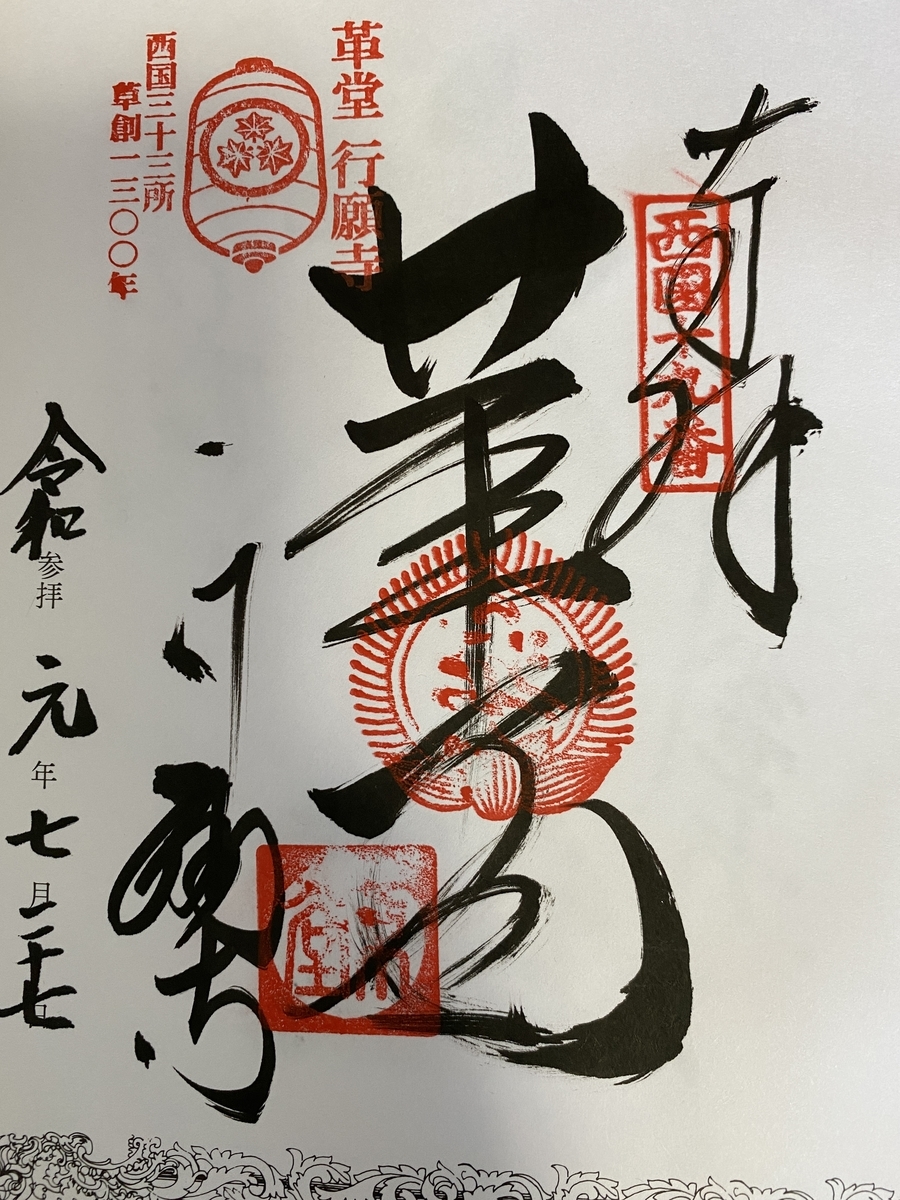 奉拝
西国十九番
革堂
革堂 行願寺
西国三十三所
草創一三〇〇年
行願寺
令和参拝元年七月二十七日